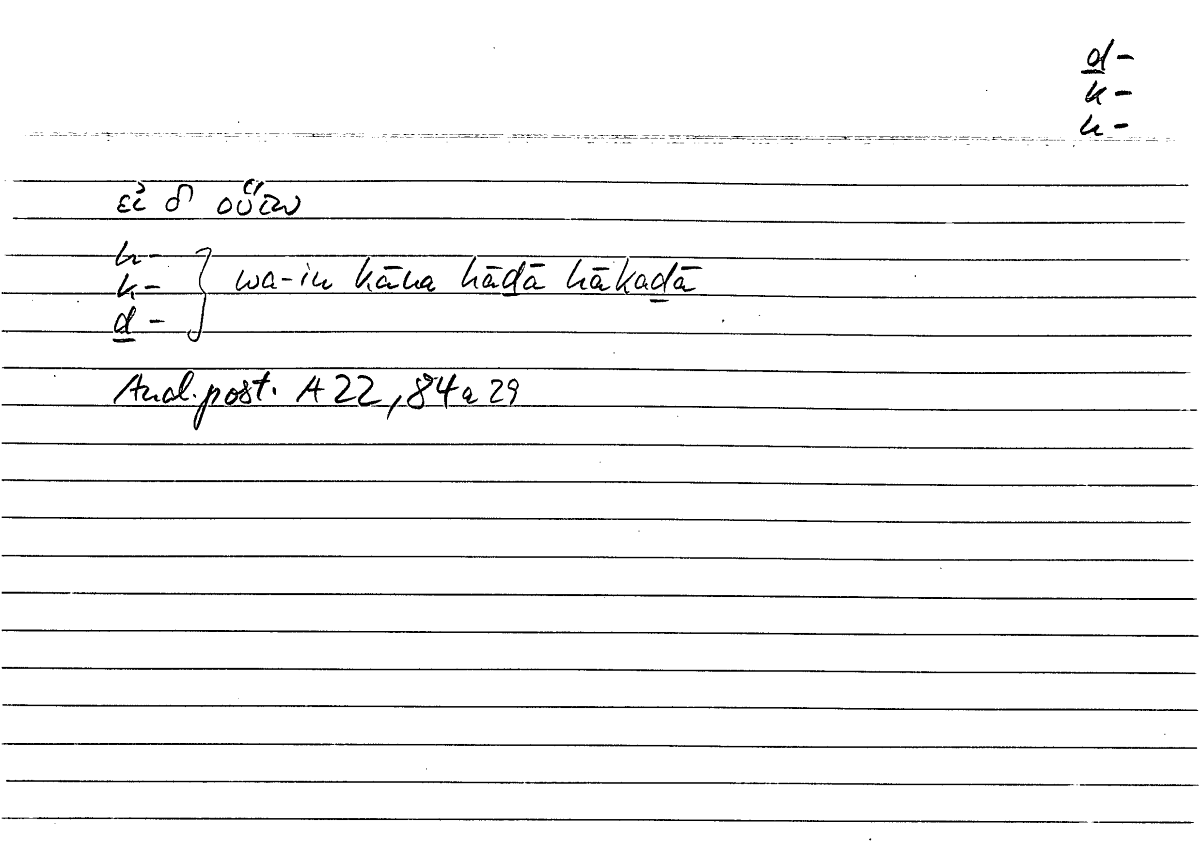 ḏ-
k-
h-
εἰ δ οὕτω
h-
k- } wa-in kāna hāḏā hākaḏā
ḏ-
Anal. post. A 22, 84 a 29